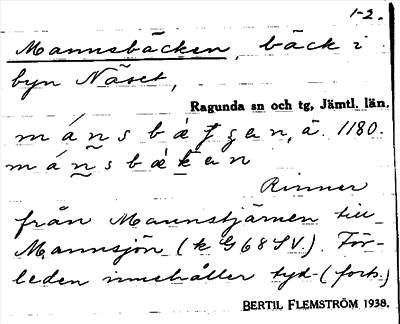 1-2.
Mannsbäcken, bäck i
byn Näset,
Ragunda sn och tg, Jämtl. län.
1180.
Rinner
från Mannstjärnen till
Mannsjön (k G68SV.). För-
leden innehåller tyd- (forts.)
BERTIL FLEMSTRÖM 1938.